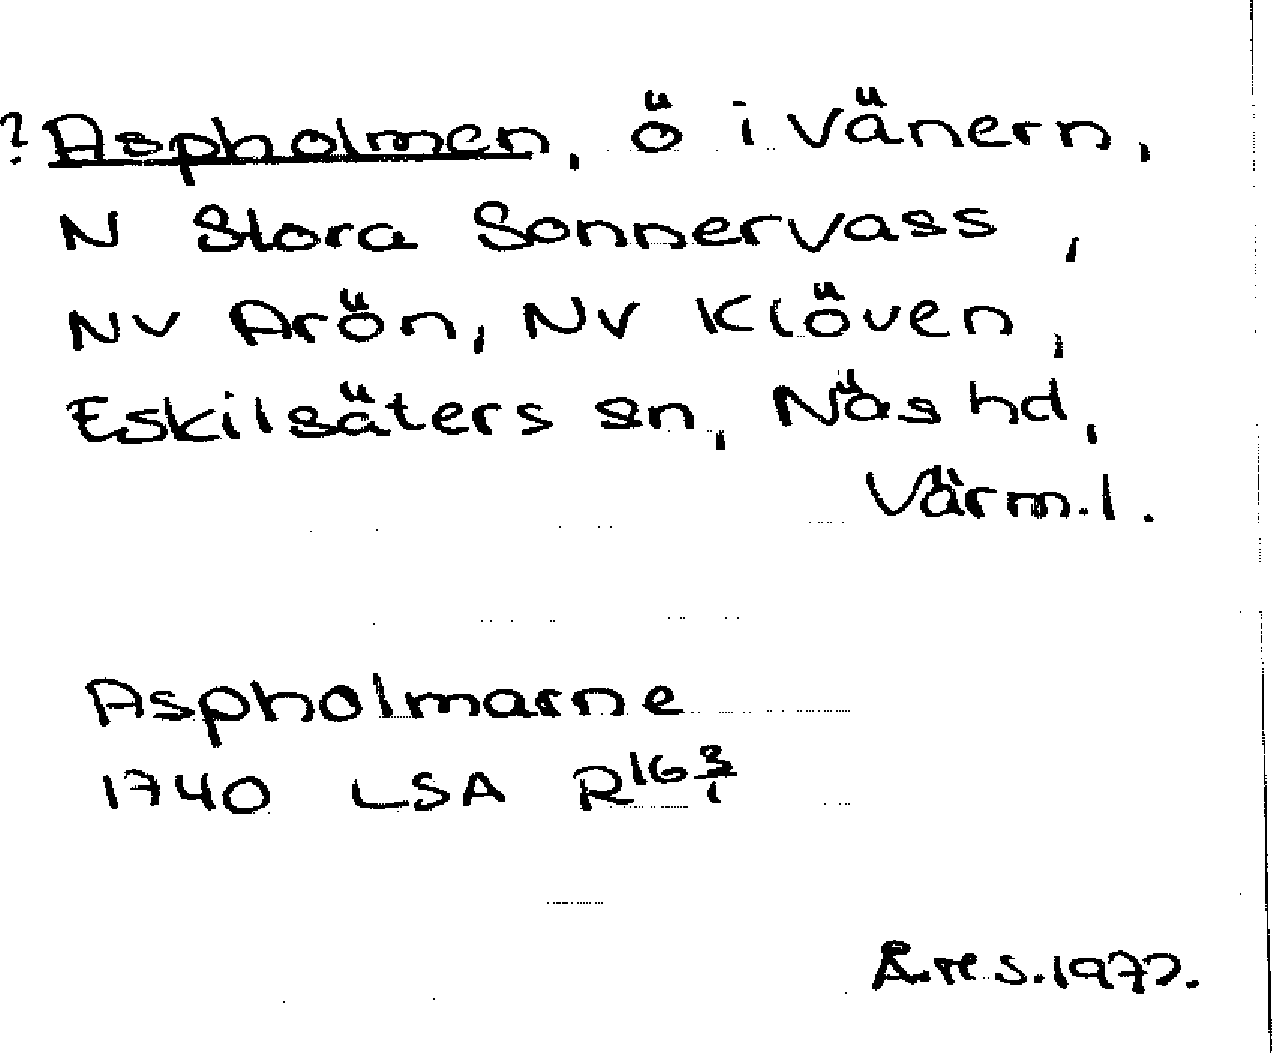 ? Aspholmen, ö i Vänern,
N Stora Sonnervass,
NV Arön, NV Klöven,
Eskilsäters sn, Näs hd,
Värml.
Aspholmarne
1740 LSA R16 3/1
1977.